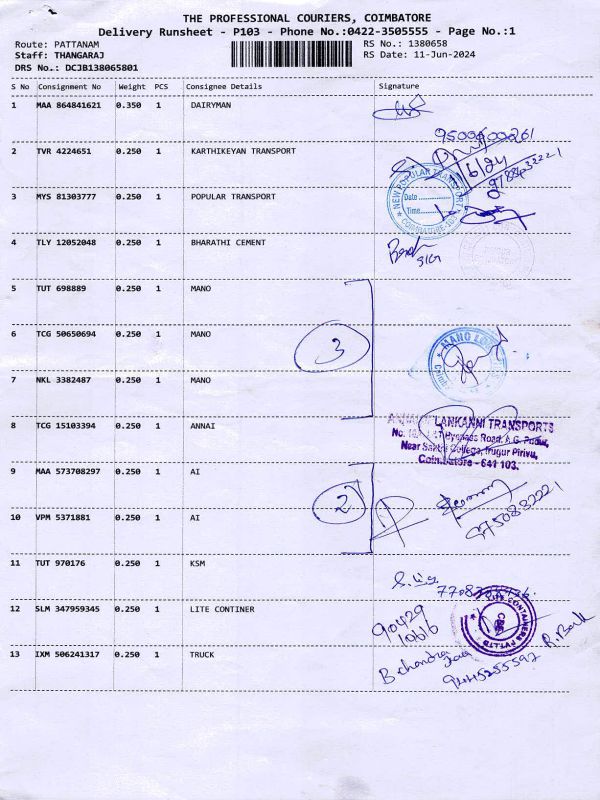 THE PROFESSIONAL COURIERS, COIMBATORE
Delivery Runsheet - P103 - Phone No.:0422-3505555 - Page No.:1
Route: PATTANAM
RS No.: 1380658
Staff: THANGARAJ
RS Date: 11-Jun-2024
DRS No.: DCJB138065801
S No Consignment No Weight PCS Consignee Details Signature
1 MAA 864841621 0.350 1 DAIRYMAN
2 TVR 4224651 0.250 1 KARTHIKEYAN TRANSPORT
3 MYS 81303777 0.250 1 POPULAR TRANSPORT
NEW POPULAR TRANSPORT
Date
Time
4 TLY 12052048 0.250 1 BHARATHI CEMENT
5 TUT 698889 0.250 1 MANO
6 TCG 50650694 0.250 1 MANO
3
MANO
7 NKL 3382487 0.250 1 MANO
8 TCG 15103394 0.250 1 ANNAI
LANKANNI TRANSPORTS
Bypass Road, A.G. Pudur,
College, Irugur Pirivu,
Coimbatore - 641 103.
9 MAA 573708297 0.250 1 AI
2
10 VPM 5371881 0.250 1 AI
11 TUT 970176 0.250 1 KSM
12 SLM 347959345 0.250 1 LITE CONTINER
LITE CONTAINERS PVT.LTD
90429
13 IXM 506241317 0.250 1 TRUCK